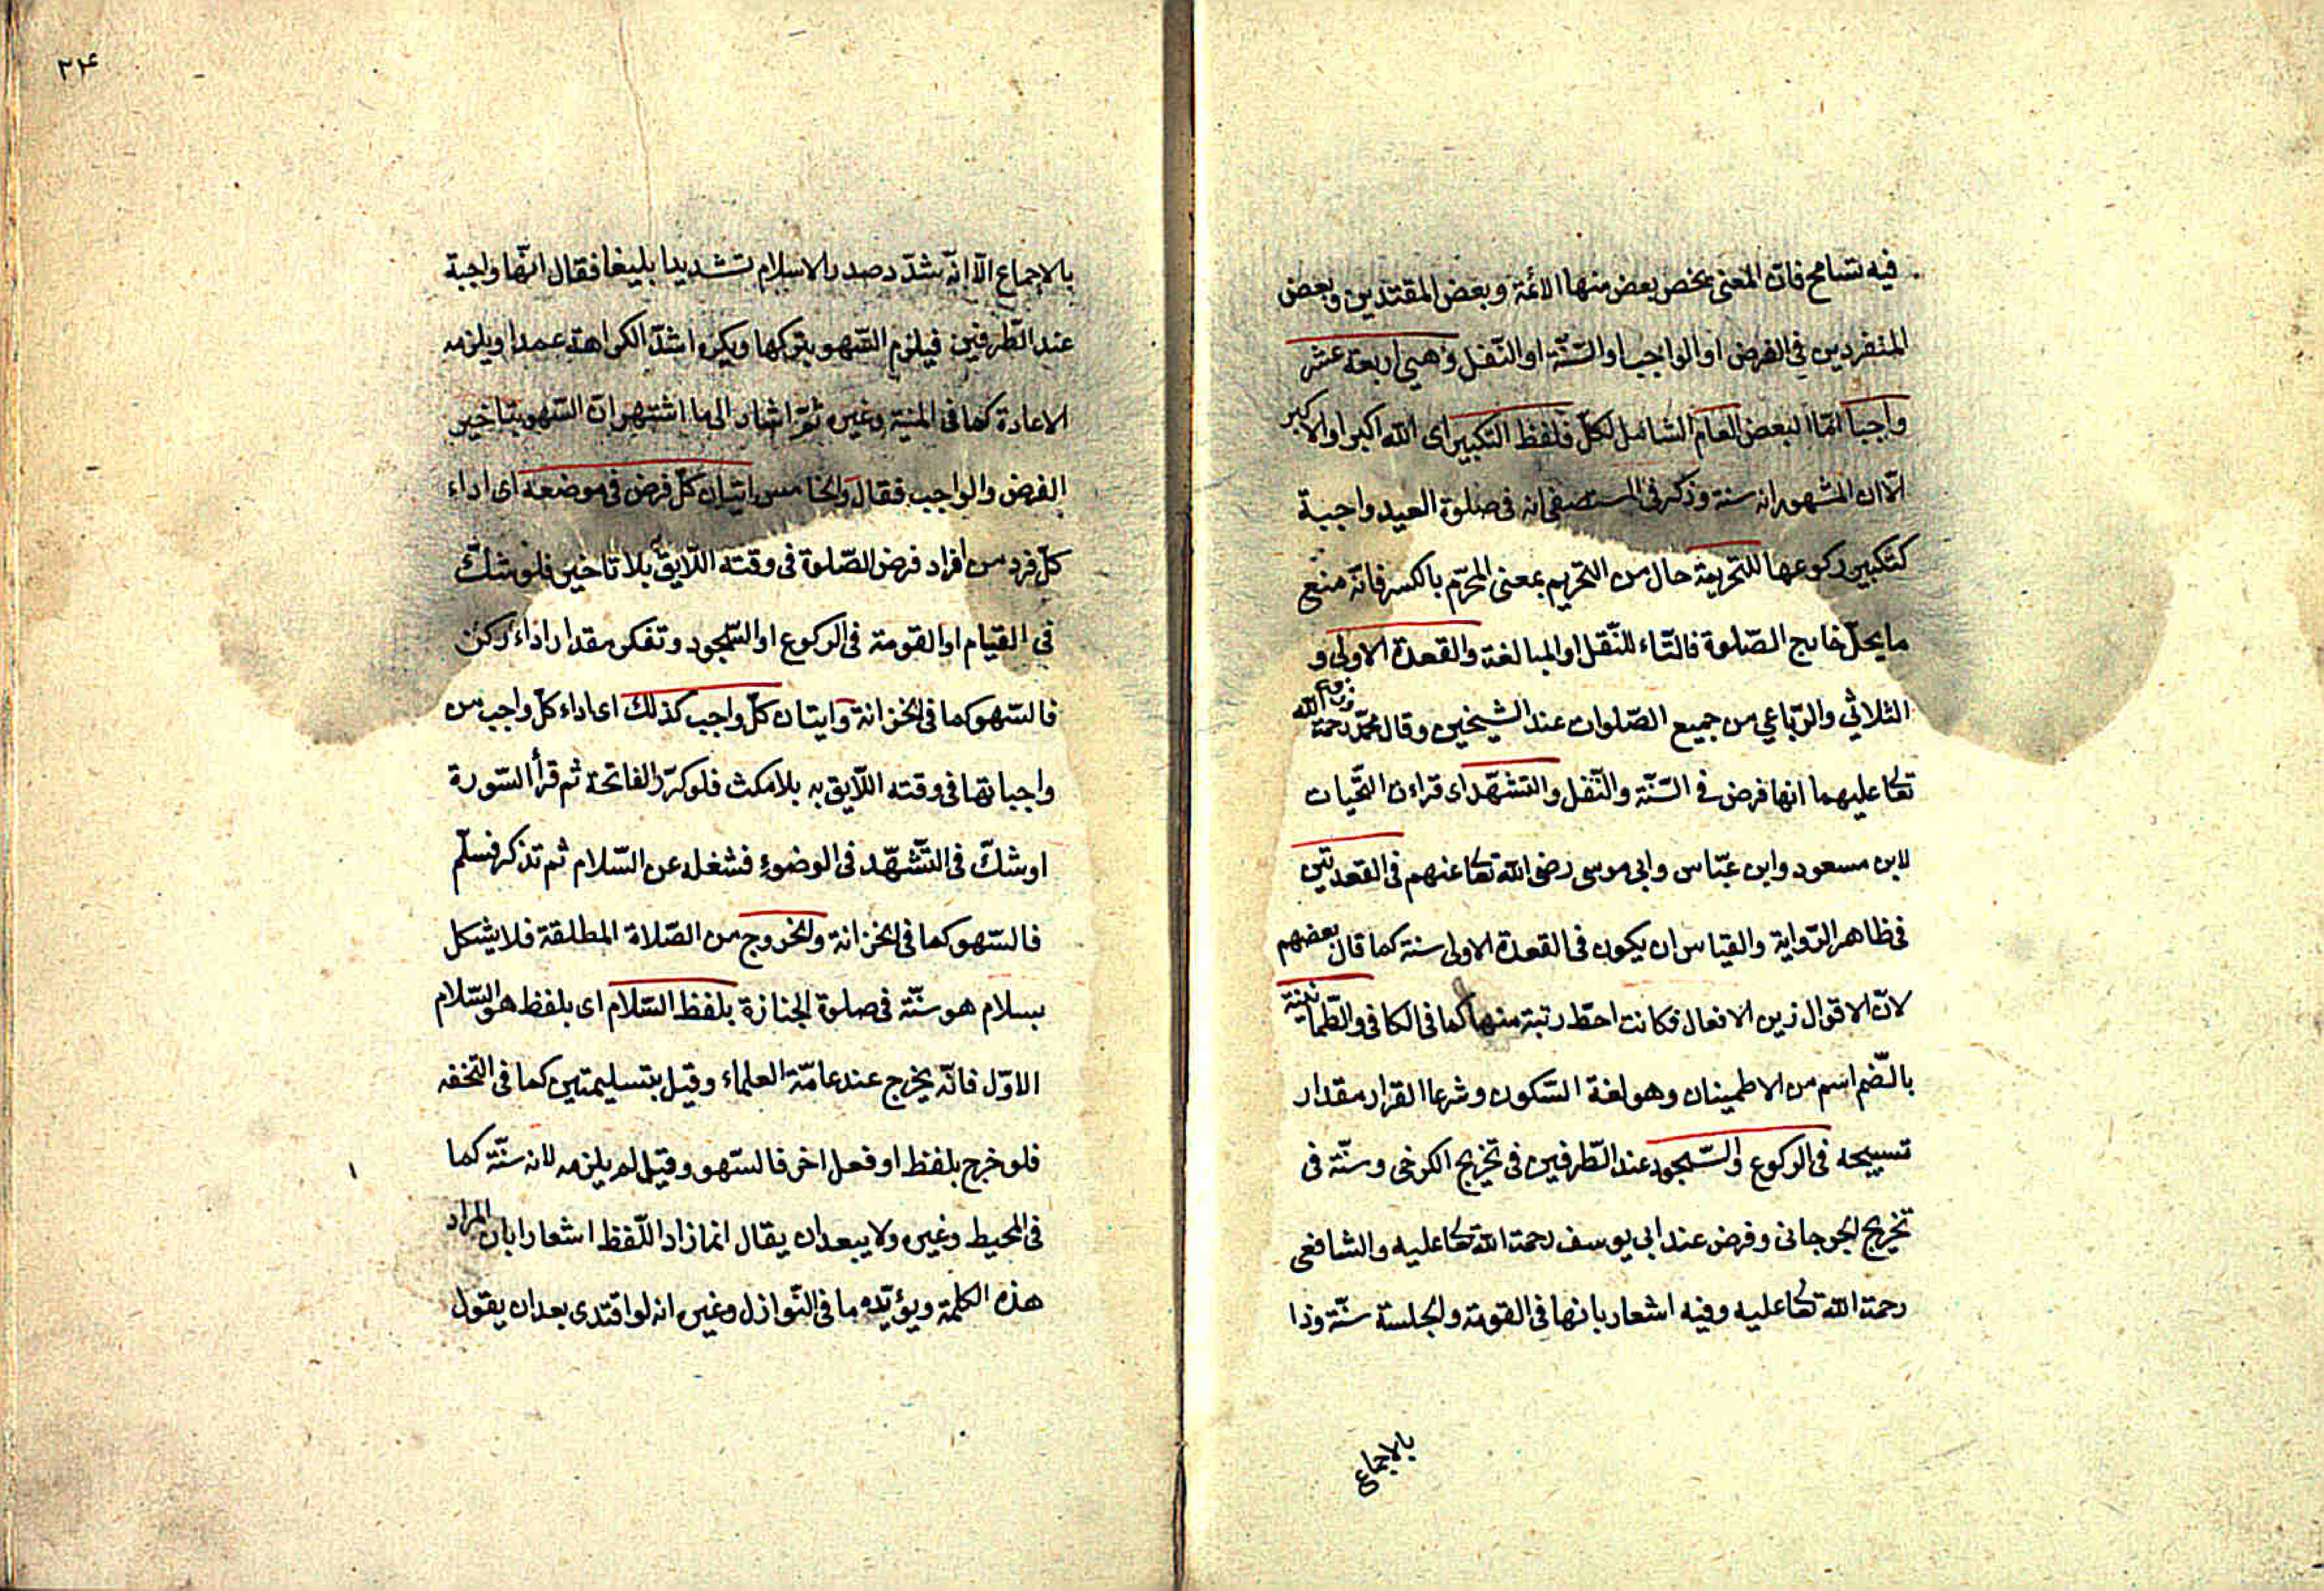 فيه تسامح فان المعنى يخص بعض منها الائمة وبعض المقتدين وبعض
المنفردين في الفرض او الواجب او السّنّة او النّفل وهي اربعة عشر
واجبا امّا البعض العام الشامل لكلّ فلفظ التكبير اى الله اكبر او الاكبر
الّا ان المشهور انه سنة وذكر فى المستصفى انه فى صلوة العيد واجبة
كتكبير ركوعها للتحريمة حال من التحريم بمعنى المحرّم بالكسر فانّه منع
ما يحلّ خارج الصّلوة فالتّاء للنّقل او المبالغة والقعدة الاولى و
الثلاثي والرّباعي من جميع الصّلوات عند الشيخين وقال محمّد رحمة الله
تعا عليهما انها فرض فى السّنّة والنّفل والتشهّد اى قراءة التّحيات
لابن مسعود وابن عبّاس وابى موسى رضى الله تعا عنهم فى القعدتين
فى ظاهر الرّواية والقياس ان يكون فى القعدة الاولى سنة كما قال بعضهم
لانّ الاقوال زين الافعال فكانت احطّ رتبة منها كما فى الكافى والطّمانينة
بالضّم اسم من الاطمينان وهو لغة السّكون وشرعا القرار مقدار
تسبيحه فى الركوع والسّجود عند الطّرفين فى تخريج الكرخى وسنّة فى
تخريج الجرجانى وفرض عند ابى يوسف رحمة الله تعا عليه والشافعى
رحمة الله تعا عليه وفيه اشعار بانها فى القومة والجلسة سنّة وذا
بالاجماع
٢٤
بالاجماع الّا انّه شدّد صدر الاسلام تشديدا بليغا فقال انّها واجبة
عند الطّرفين فيلزم السّهو بتركها ويكره اشدّ الكراهة عمدا ويلزمه
الاعادة كما فى المنية وغيره ثمّ اشار الى ما اشتهر ان السّهو بتاخير
الفرض والواجب فقال والخامس اتيان كلّ فرض فى موضعه اى اداء
كلّ فرد من افراد فرض الصّلوة فى وقته اللّايق بلا تاخير فلو شكّ
فى القيام او القومة فى الركوع او السّجود وتفكر مقدار اداء ركن
فالسّهو كما فى الخزانة وايتان كلّ واجب كذلك اى اداء كلّ واجب من
واجباتها فى وقته اللّايق به بلا مكث فلو كرّر الفاتحة ثم قرأ السّورة
او شكّ فى التّشهّد فى الوضوء فشغله عن السّلام ثم تذكر فسلّم
فالسّهو كما فى الخزانة والخروج من الصّلاة المطلقة فلا يشكل
بسلام هو سنّة فى صلوة الجنازة بلفظ السّلام اى بلفظ هو السّلام
الاوّل فانّه يخرج عند عامّة العلماء وقيل بتسليمتين كما فى التحفه
فلو خرج بلفظ او فعل اخر فالسّهو وقيل لم يلزمه لانه سنّة كما
فى المحيط وغيره ولا يبعد ان يقال انما زاد اللّفظ اشعارا بان المراد
هذه الكلمة ويؤيّده ما فى النّوازل وغيره انه لو اقتدى بعد ان يقول